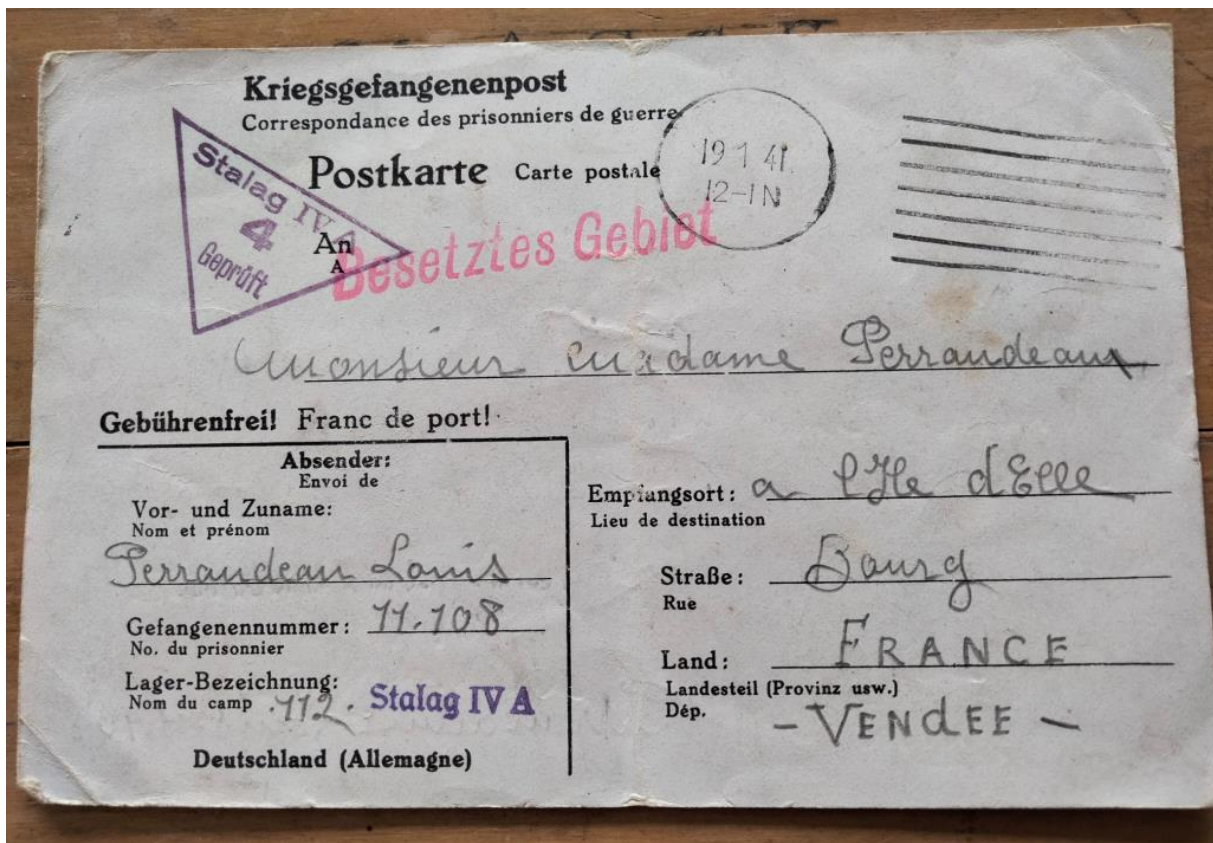 Kriegsgefangenenpost
Correspondance des prisonniers de guerre
Postkarte Carte postale
19 1 41.
12-1 N
Stalag IV A
4
Geprüft
An
A
Besetztes Gebiet
Monsieur Madame Perraudeau
Gebührenfrei! Franc de port!
Absender:
Envoi de
Vor- und Zuname:
Nom et prénom
Perraudeau Louis
Gefangenennummer: 11.108
No. du prisonnier
Lager-Bezeichnung:
Nom du camp .112. Stalag IV A
Deutschland (Allemagne)
Empfangsort: a l'Ile d'Elle
Lieu de destination
Straße: Bourg
Rue
Land: FRANCE
Landesteil (Provinz usw.)
Dép. - VENdEE -